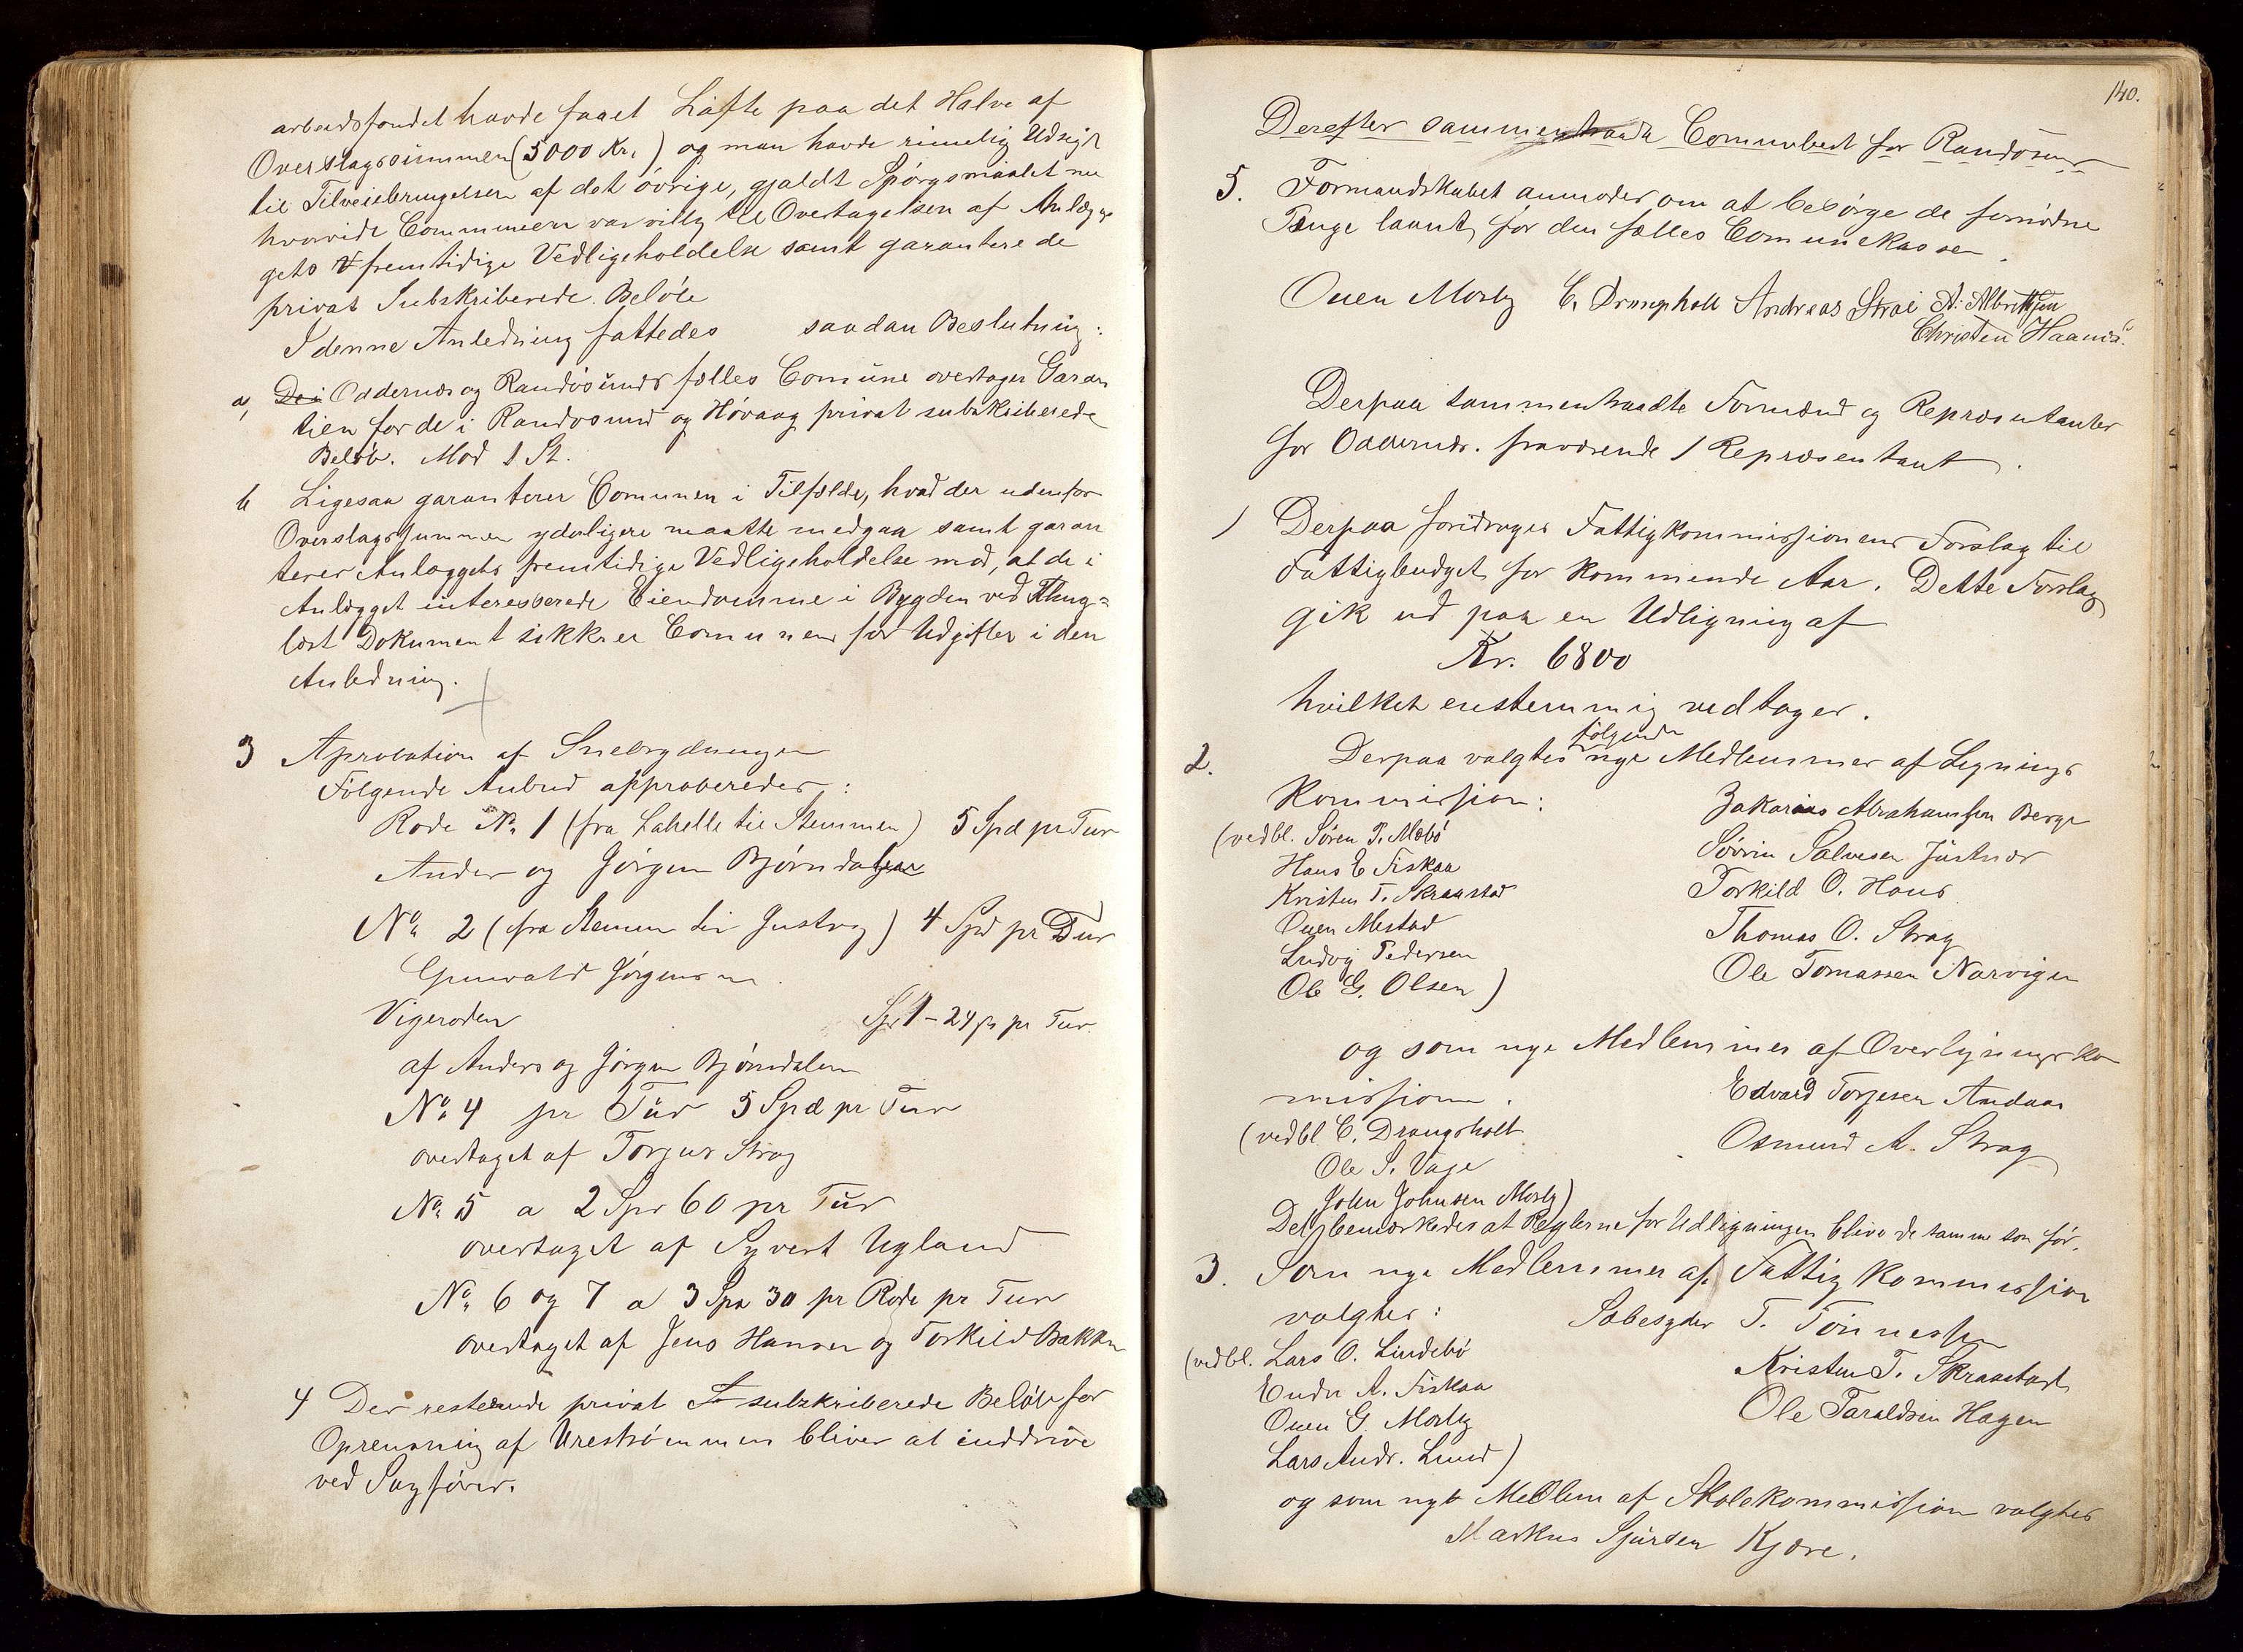 arbeidsfondet havde faaet Løfte paa det Halve af
Overslagssummen (5000 Kr.) og man havde rimelig Udsigt
til Tilveiebringelsen af det øvrige, gjaldt Spørgsmaalet nu
hvorvidt Communen var villig til Overtagelsen af Anlæg
gets fremtidige Vedligeholdelse samt garantere de
privat Subskriberede Beløb
I denne Anledning fattedes saadan Beslutning:
a, De i Oddernes og Randøsunds fælles Comune overtager Garan
tien for de i Randøsund og Høvaag privat subskriberede
Beløb. Mod 1 St.
b Ligesaa garanterer Comunen i Tilfælde, hvad der udenfor
Overslagssummen yderligere maatte medgaa samt garan
terer Anlæggets fremtidige Vedligeholdelse mod, at de i
Anlægget interesserede Eiendomme i Bygden ved Thing=
læst Dokument sikkrer Comunen for Udgifter i den
Anledning.
3 Aprobation af Snebrydningen
Følgende Anbud approberedes:
Rode No 1 (fra Lahelle til Stemmen) 5 Spd pr Tur
Anders og Jørgen Bjørndalen
No 2 (fra Stemmen til Justvig) 4 Spd pr Tur
Grunwald Jørgensen
Vigeroden Spd 1 - 24 ß pr Tur.
af Anders og Jørgen Bjørndalen
No 4 pr Tur 5 Spd pr Tur
overtaget af Torjus Strag
No 5 a 2 Spd 60 pr Tur
overtaget af Syvert Ugland
No 6 og 7 a 3 Spd 30 pr Rode pr Tur
overtaget af Jens Hansen og Torkild Bakken
4 Der resterende privat subzkriberede Beløb for
Oprensning af Urestrømmen bliver at inddrive
ved Sagfører.
140.
Derefter sammentraadte Comunebest for Randøsund
5. Formandskabet anmodes om at besørge de fornødne
Penge laant for den fælles Comunekasse.
Ouen Mosby C. Drangsholt Andreas Strai A. Albrethsen
Christen Haanes.
Derpaa sammentraadte Formænd og Repræsentanter
for Oddernes. fraværende 1 Repræsentant.
1 Derpaa foredroges Fattigkommissionens Forslag til
Fattigbudget for kommende Aar. Dette Forslag
gik ud paa en Udligning af
Kr. 6800
hvilket enstemmig vedtages.
følgende
2. Derpaa valgtes nye Medlemmer af Lignings
Kommission: Zakarias Abrahamsen Berge
(vedbl. Søren P. Mæbø Søvrin Salvesen Justnes
Hans E Fiskaa Torkild O. Haus
Kristen T. Skraastad Thomas O. Strag
Ouen Mestad Ole Tomassen Narvigen
Ludvig Pedersen
Ole G. Olsen)
og som nye Medlemmer af Overligningsko
missionen. Edvard Torjesen Andaas
(vedbl. C. Drangsholt Osmund A. Strag
Ole S. Vage
John Johnsen Mosby)
Det bemærkedes at Reglerne for Udligningen blive de samme som før.
3. Som nye Medlemmer af Fattigkommission
valgtes: Sæbesyder T. Tønnessen
(vedbl. Lars O. Lindebø Kristen T. Skraastad
Endre A. Fiskaa Ole Taraldsen Hagen
Ouen G. Mosby
Lars Andr. Lund)
og som nyt Medlem af Skolekommission valgtes
Markus Sjursen Kjære.